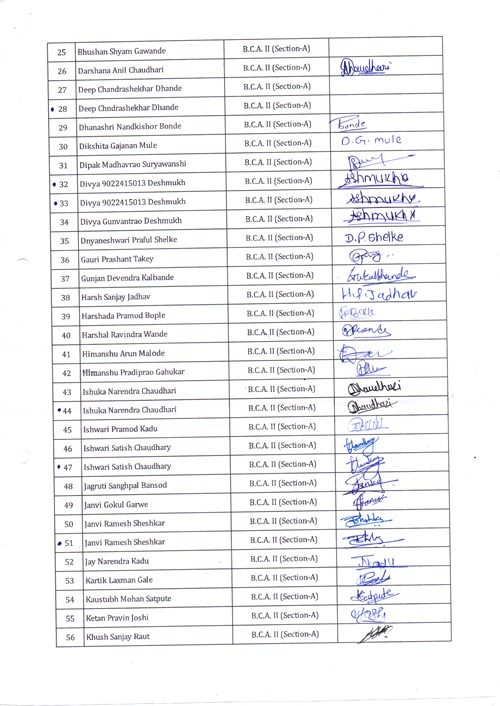 25 Bhushan Shyam Gawande B.C.A. II (Section-A)
26 Darshana Anil Chaudhari B.C.A. II (Section-A) Dhaudhari
27 Deep Chandrashekhar Dhande B.C.A. II (Section-A)
• 28 Deep Chndrashekhar Dhande B.C.A. II (Section-A)
29 Dhanashri Nandkishor Bonde B.C.A. II (Section-A) Bonde
30 Dikshita Gajanan Mule B.C.A. II (Section-A) D.G. mule
31 Dipak Madhavrao Suryawanshi B.C.A. II (Section-A)
• 32 Divya 9022415013 Deshmukh B.C.A. II (Section-A)
• 33 Divya 9022415013 Deshmukh B.C.A. II (Section-A)
34 Divya Gunvantrao Deshmukh B.C.A. II (Section-A)
35 Dnyaneshwari Praful Shelke B.C.A. II (Section-A) D.P Shelke
36 Gauri Prashant Takey B.C.A. II (Section-A)
37 Gunjan Devendra Kalbande B.C.A. II (Section-A)
38 Harsh Sanjay Jadhav B.C.A. II (Section-A) H.S. Jadhav
39 Harshada Pramod Bople B.C.A. II (Section-A)
40 Harshal Ravindra Wande B.C.A. II (Section-A)
41 Himanshu Arun Malode B.C.A. II (Section-A)
42 Himanshu Pradiprao Gahukar B.C.A. II (Section-A)
43 Ishuka Narendra Chaudhari B.C.A. II (Section-A)
• 44 Ishuka Narendra Chaudhari B.C.A. II (Section-A)
45 Ishwari Pramod Kadu B.C.A. II (Section-A)
46 Ishwari Satish Chaudhary B.C.A. II (Section-A)
• 47 Ishwari Satish Chaudhary B.C.A. II (Section-A)
48 Jagruti Sanghpal Bansod B.C.A. II (Section-A)
49 Janvi Gokul Garwe B.C.A. II (Section-A)
50 Janvi Ramesh Sheshkar B.C.A. II (Section-A)
• 51 Janvi Ramesh Sheshkar B.C.A. II (Section-A)
52 Jay Narendra Kadu B.C.A. II (Section-A)
53 Kartik Laxman Gale B.C.A. II (Section-A)
54 Kaustubh Mohan Satpute B.C.A. II (Section-A)
55 Ketan Pravin Joshi B.C.A. II (Section-A)
56 Khush Sanjay Raut B.C.A. II (Section-A)